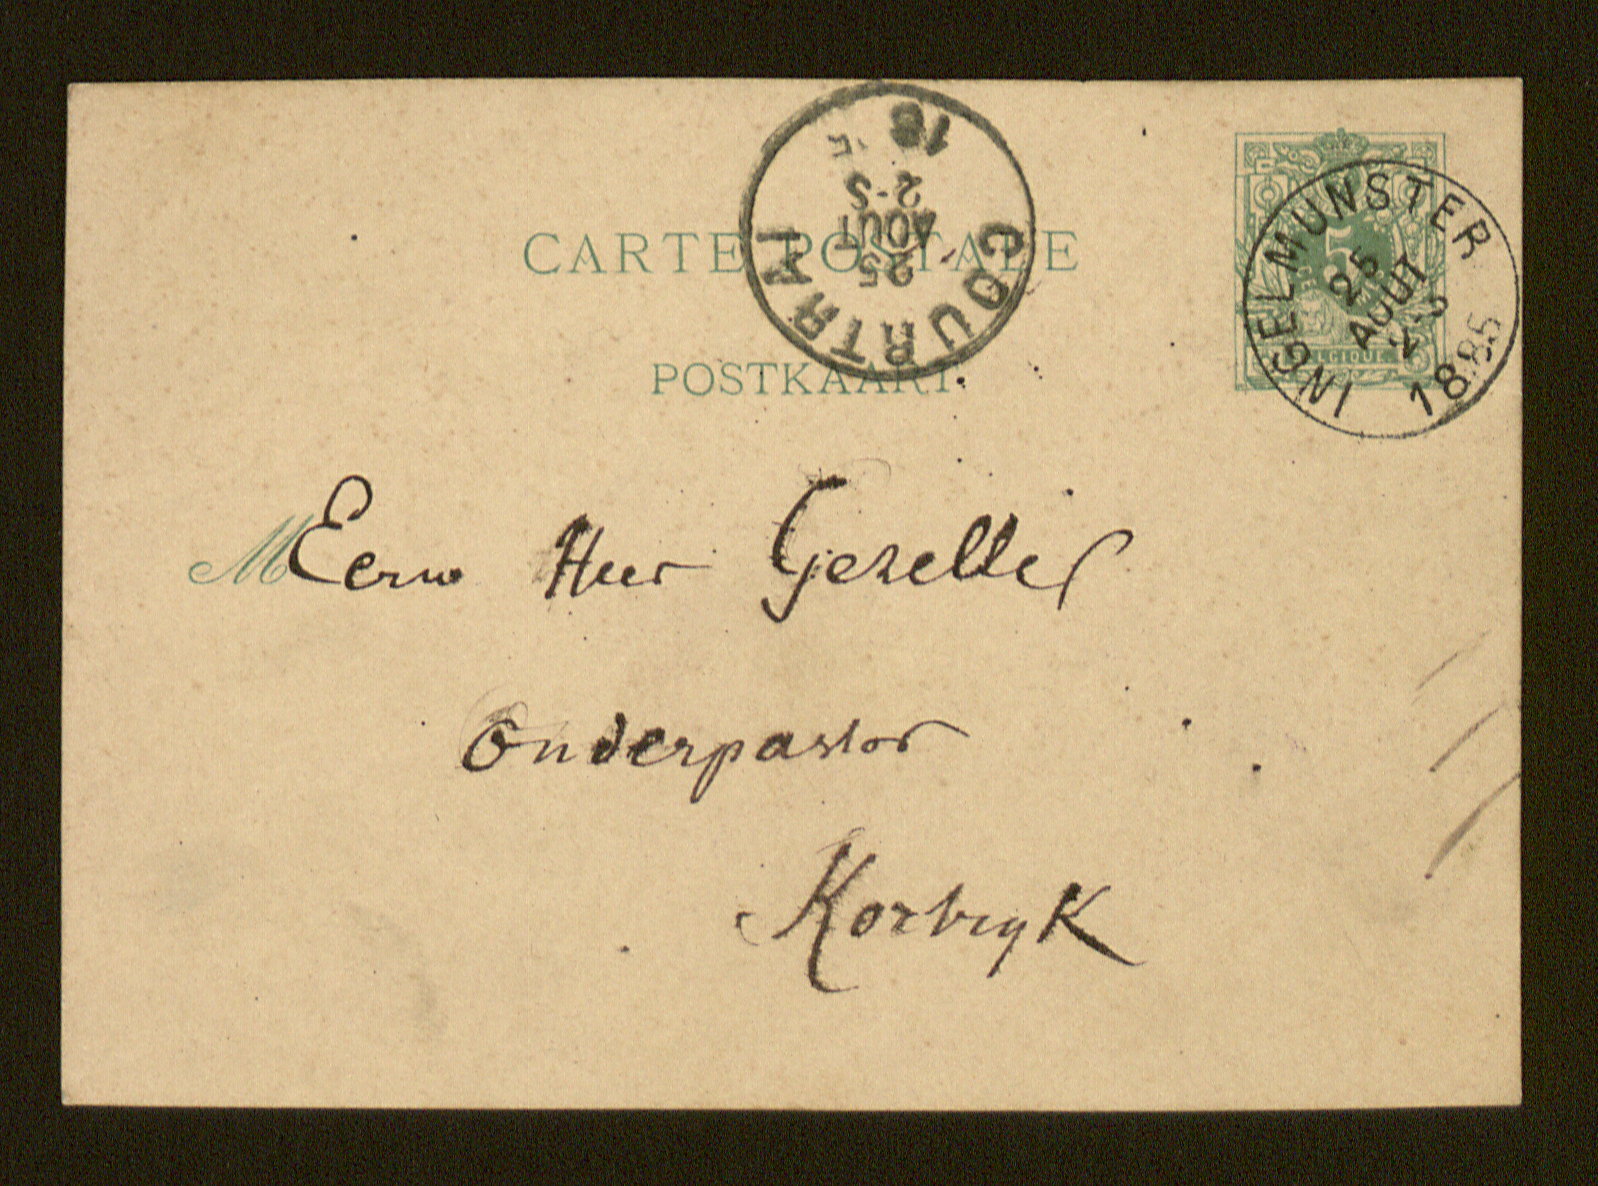 CARTE POSTALE
POSTKAART
COURTRAI
25
AOUT
2-S
18 5
INGELMUNSTER
25
AOUT
2-S
1885
5
BELGIQUE
M
Eerw Heer Gezelle
Onderpastor
Kortryk